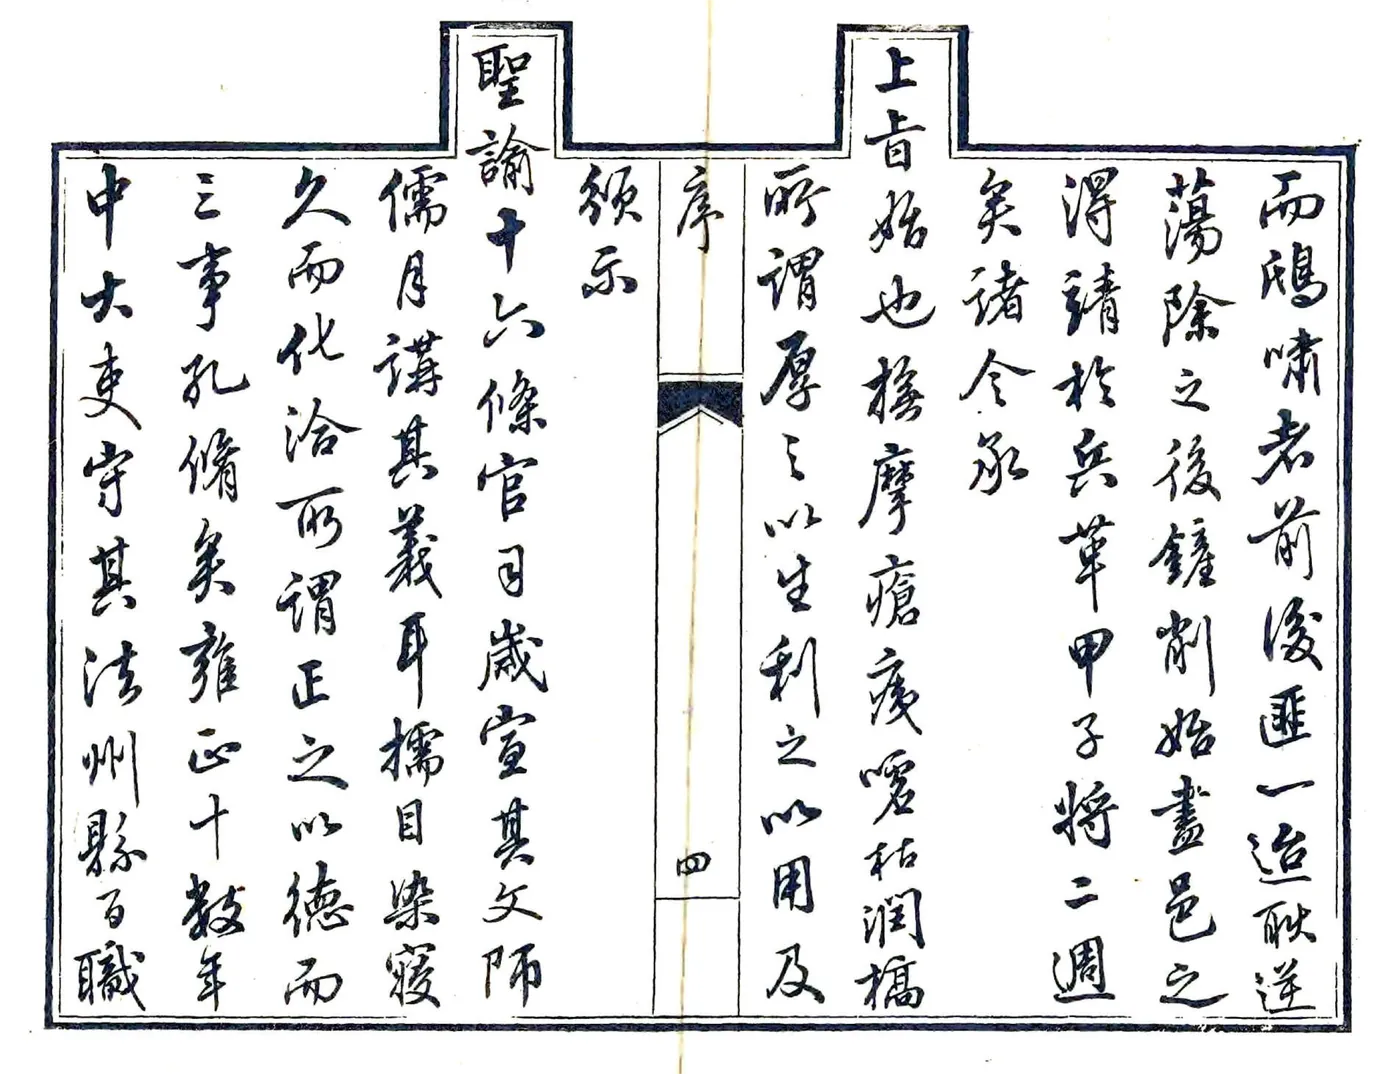 而鴟嘯者前後匪一迨耿逆
蕩除之後鏟削始盡邑之
得請於兵革甲子將二週
矣諸令承
上旨始也撫摩瘡痍噓枯潤槁
所謂厚之以生利之以用及
序
四
頒示
聖諭十六條官司歲宣其文師
儒月講其義耳擩目染寖
久而化洽所謂正之以德而
三事孔脩矣雍正十數年
中大吏守其法州縣百職